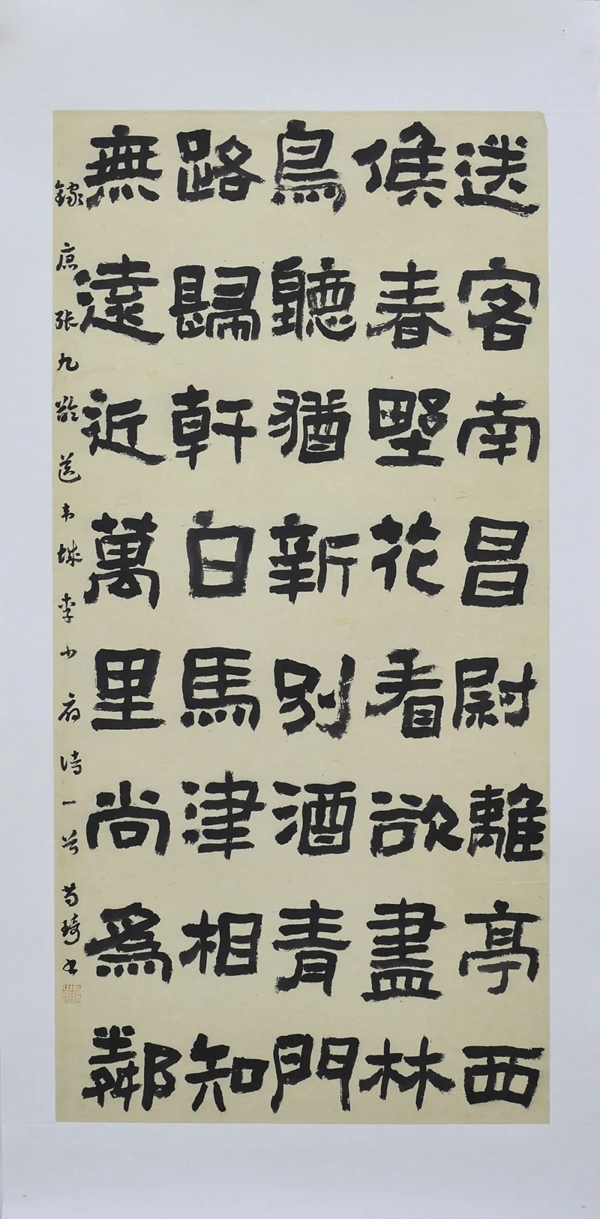 送客南昌尉離亭西
候春墅花看欲盡林
鳥聽猶新別酒青門
路歸軒白馬津相知
無遠近萬里尚爲鄰
錄唐張九齡送韦城李少府诗一首 琦书